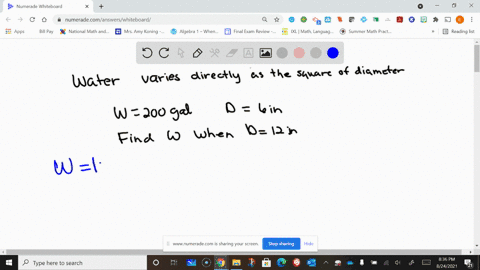 Numerade Whiteboard
numerade.com/answers/whiteboard/
Apps Bill Pay National Math and... Mrs. Amy Korning -... Algebra 1 – When... Final Exam Review -... IXL | Math, Language,... Summer Math Practi... Reading list
Water varies directly as the square of diameter
W = 200 gal D = 6 in
Find W when D = 12 in
W =
www.numerade.com is sharing your screen. Stop sharing Hide
Type here to search
8:36 PM
8/24/2021